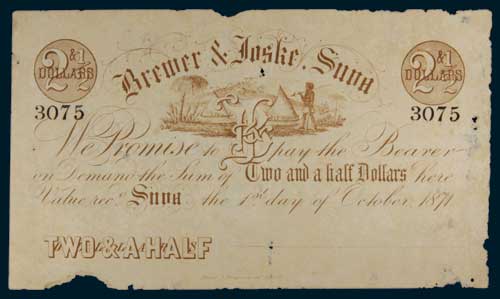 2 & 1/2 DOLLARS
Brewer & Joske, Suva
2 & 1/2 DOLLARS
3075
3075
We Promise to pay the Bearer
on Demand the Sum of Two and a half Dollars here
Value recd. Suva the 1st day of October, 1871
TWO & A HALF
DOLLARS